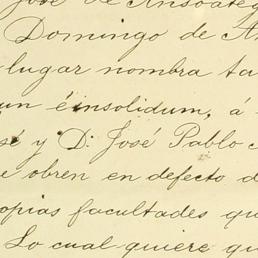 José de Ansoateg
Domingo de A
lugar nombra ta
un é insolidum, á
sé y D. José Pablo
e obren en defecto d
opias facultades qu
Lo cual quiere qu